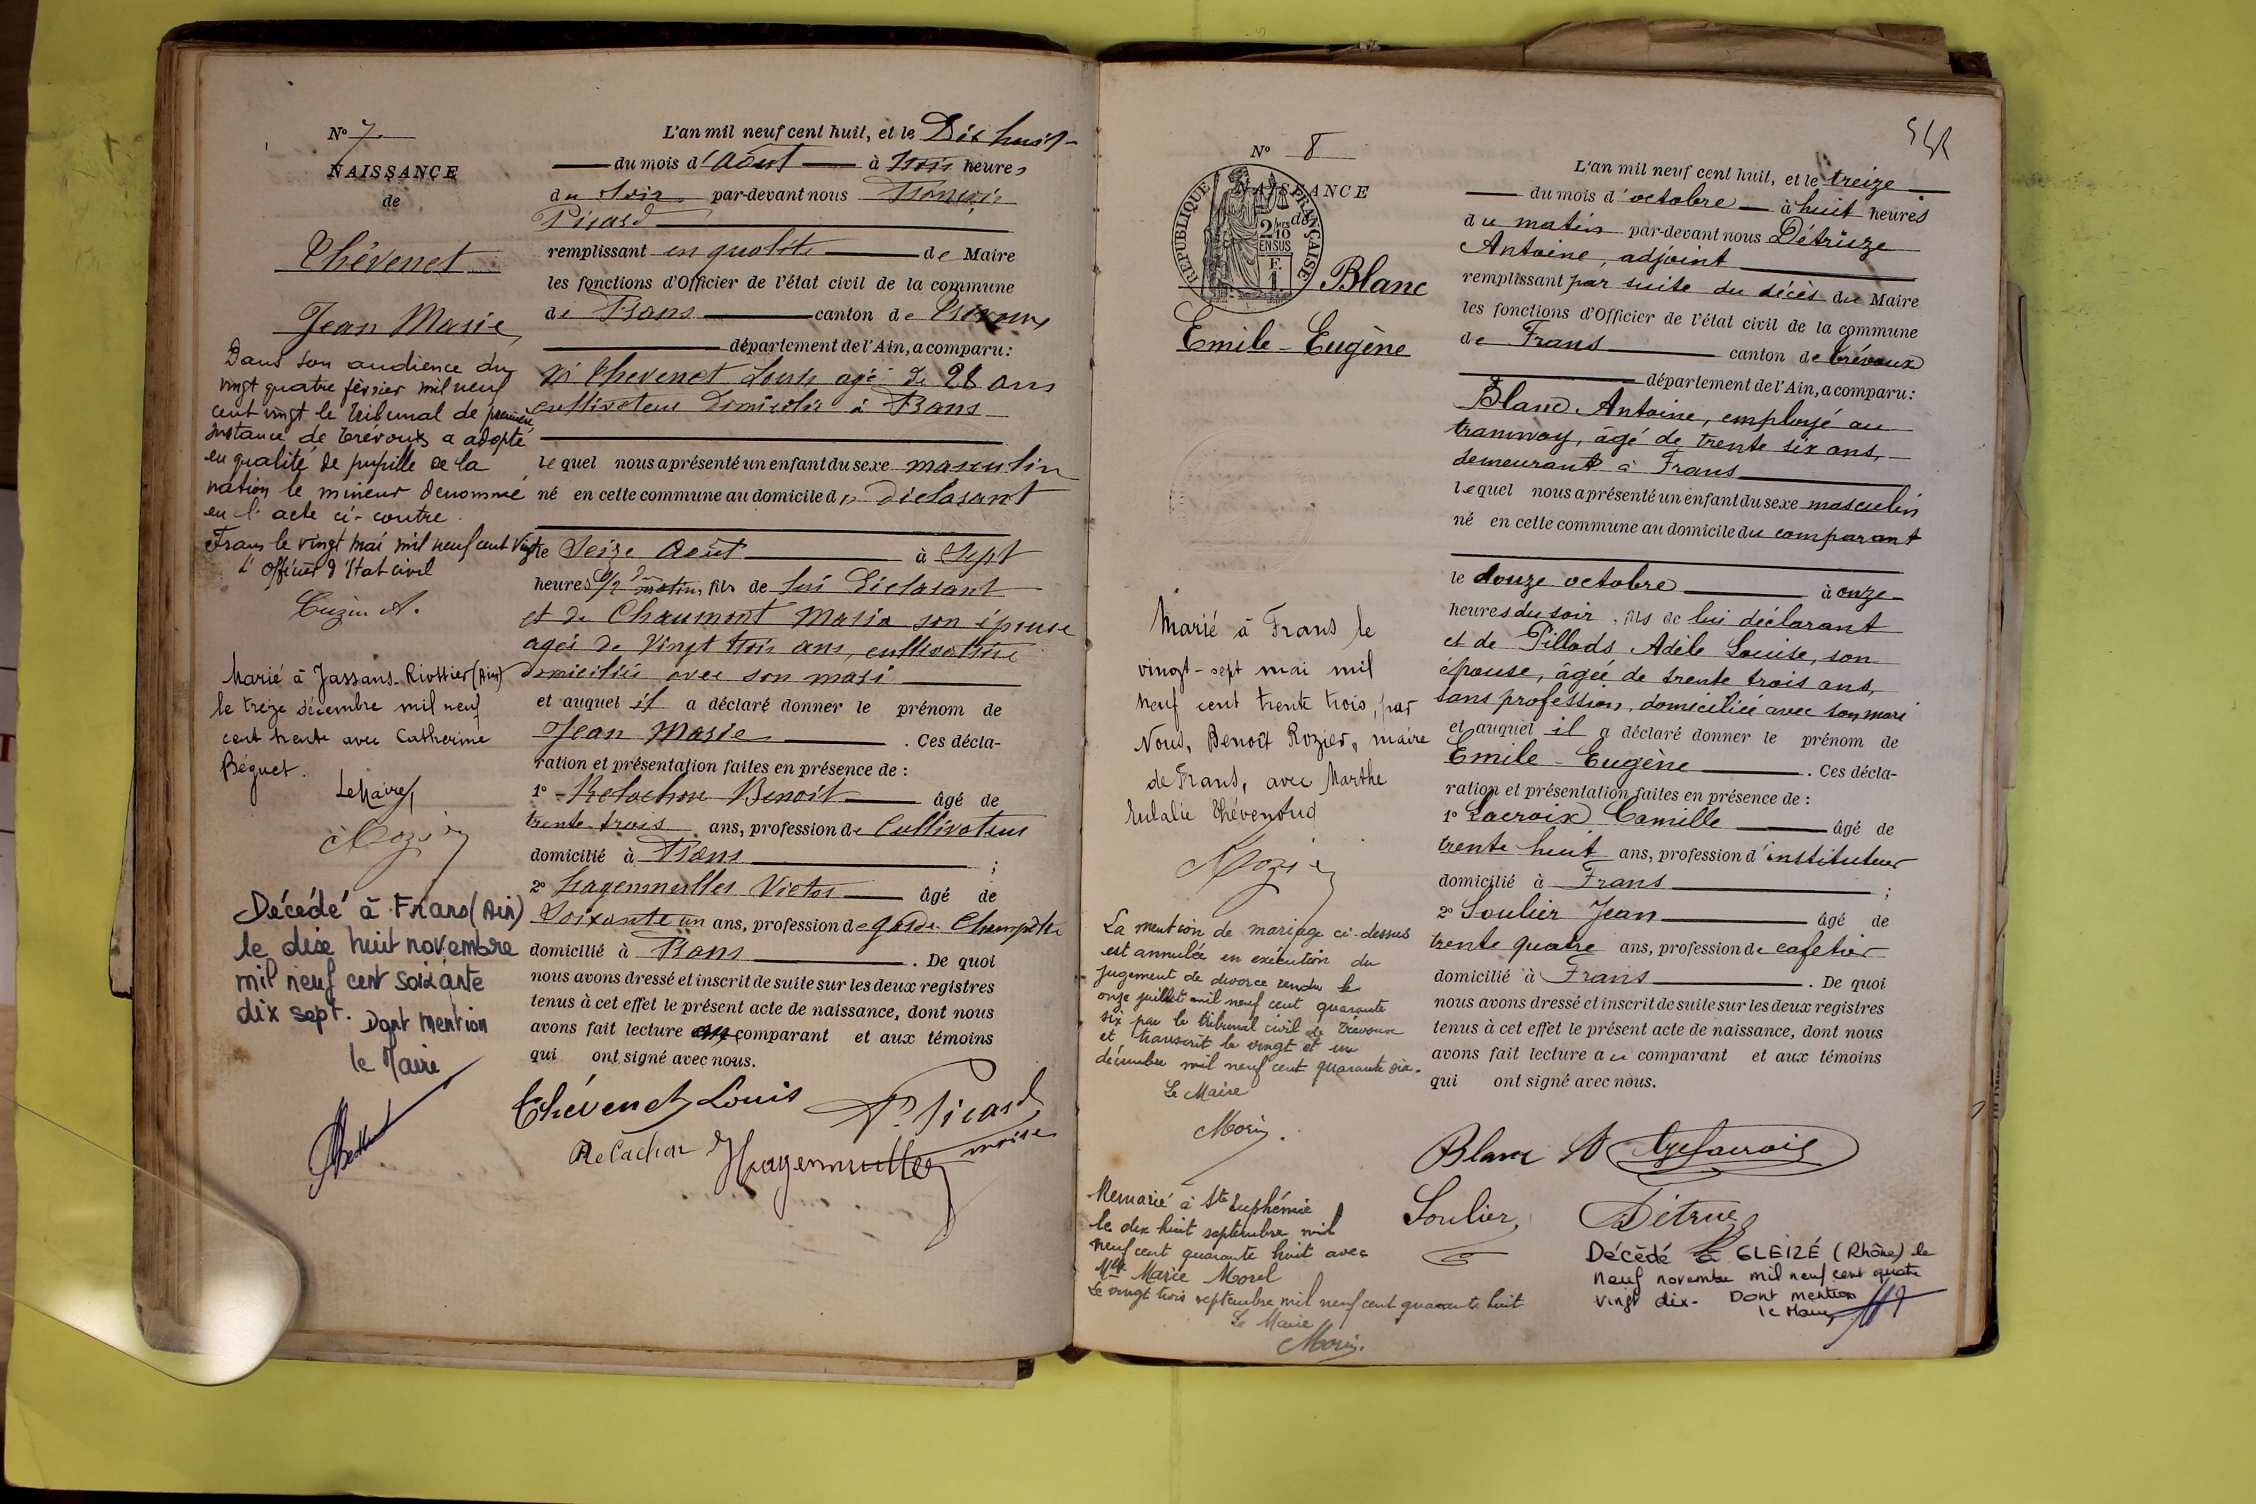 N° 7
NAISSANCE
de
Chévenet
Jean Marie
Dans son audience du
vingt quatre février mil neuf
cent vingt le tribunal de première
instance de Trévoux a adopté
en qualité de pupille de la
nation le mineur dénommé
en l'acte ci-contre.
Frans le vingt mai mil neuf cent vingt
L'officier d'Etat civil
Marié à Jassans-Riottier (Ain)
le treize décembre mil neuf
cent trente avec Catherine
Béguet.
Le Maire,
Décédé à Frans (Ain)
le dix huit novembre
mil neuf cent soixante
dix sept. Dont mention
le Maire
L'an mil neuf cent huit, et le Dix huit
du mois d'Août à trois heures
du soir par-devant nous François
Picard
remplissant en qualité de Maire
les fonctions d'Officier de l'état civil de la commune
de Frans canton de Trévoux
département de l'Ain, a comparu:
Mr Chevenet Louis agé de 28 ans
cultivateur domicilié à Frans
lequel nous a présenté un enfant du sexe masculin
né en cette commune au domicile du déclarant
le Seize Août à Sept
heures 1/2 du matin, fils de lui déclarant
et de Chaumont Maria son épouse
agée de Vingt trois ans, cultivatrice
domiciliée avec son mari
et auquel il a déclaré donner le prénom de
Jean Marie . Ces décla-
ration et présentation faites en présence de:
1° Relachon Benoit âgé de
trente trois ans, profession de Cultivateur
domicilié à Frans ;
2° Hagenmuller Victor âgé de
Soixante un ans, profession de garde Champêtre
domicilié à Frans . De quoi
nous avons dressé et inscrit de suite sur les deux registres
tenus à cet effet le présent acte de naissance, dont nous
avons fait lecture au comparant et aux témoins
qui ont signé avec nous.
Chévenet Louis F. Picard
maire
Relachon Hagenmuller
N° 8
NAISSANCE
de
RÉPUBLIQUE FRANÇAISE
2/10
EN SUS
F.
1.
Blanc
Emile-Eugène
Marié à Frans le
vingt-sept mai mil
neuf cent trente trois, par
Nous, Benoît Rozier, maire
de Frans, avec Marthe
Eulalie Thévenoud
Rozier
La mention de mariage ci-dessus
est annulée en exécution du
jugement de divorce rendu le
onze juillet mil neuf cent quarante
six par le tribunal civil de Trévoux
et transcrit le vingt et un
décembre mil neuf cent quarante six.
Le Maire
Morin.
Remarié à Ste Euphémie
le dix huit septembre mil
neuf cent quarante huit avec
Mlle Marie Morel
Le vingt trois septembre mil neuf cent quarante huit
Le Maire
Morin.
L'an mil neuf cent huit, et le treize
du mois d'octobre à huit heures
du matin par-devant nous Détruze
Antoine, adjoint
remplissant par suite du décès du Maire
les fonctions d'Officier de l'état civil de la commune
de Frans canton de Trévoux
département de l'Ain, a comparu:
Blanc Antoine, employé au
tramway, âgé de trente six ans,
demeurant à Frans
lequel nous a présenté un enfant du sexe masculin
né en cette commune au domicile du comparant
le douze octobre à onze
heures du soir, fils de lui déclarant
et de Pillods Adèle Louise, son
épouse, âgée de trente trois ans,
sans profession, domiciliée avec son mari
et auquel il a déclaré donner le prénom de
Emile-Eugène . Ces décla-
ration et présentation faites en présence de:
1° Lacroix Camille âgé de
trente huit ans, profession d'instituteur
domicilié à Frans ;
2° Soulier Jean âgé de
trente quatre ans, profession de cafetier
domicilié à Frans . De quoi
nous avons dressé et inscrit de suite sur les deux registres
tenus à cet effet le présent acte de naissance, dont nous
avons fait lecture au comparant et aux témoins
qui ont signé avec nous.
Blanc A Lacroix
Soulier Détruze
Décédé à GLEIZÉ (Rhône) le
neuf novembre mil neuf cent quatre
vingt dix. Dont mention
le Maire